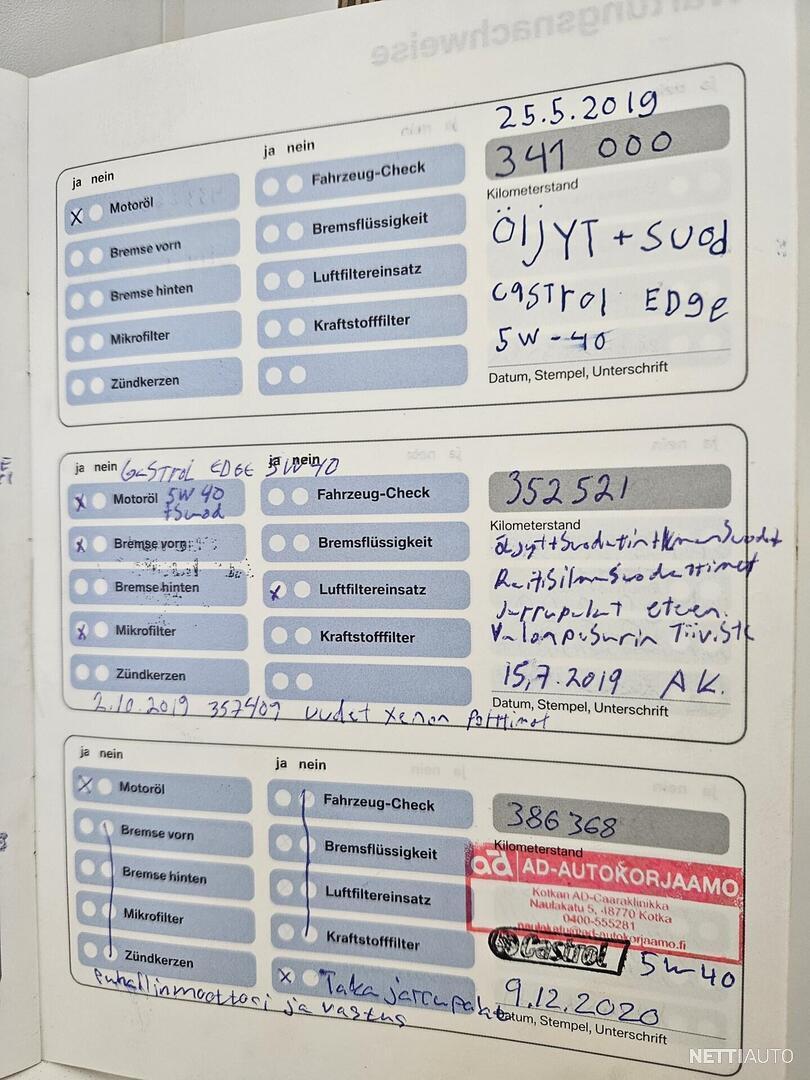 Wartungsnachweise
25.5.2019
341 000
Kilometerstand
ja nein
X Motoröl
Bremse vorn
Bremse hinten
Mikrofilter
Zündkerzen
ja nein
Fahrzeug-Check
Bremsflüssigkeit
Luftfiltereinsatz
Kraftstofffilter
ÖljYT + suod
CASTrol EDge
5W-40
Datum, Stempel, Unterschrift
ja nein
CaSTroL EDGE 5W40
x Motoröl 5W40
+Suod
x Bremse vorn
Bremse hinten
x Mikrofilter
Zündkerzen
ja nein
Fahrzeug-Check
Bremsflüssigkeit
x Luftfiltereinsatz
Kraftstofffilter
352521
Kilometerstand
RaitiSilmaSuodattimet
Jarrupalat eteen.
Valonpusurin Tiiviste
15,7.2019 AK.
Datum, Stempel, Unterschrift
2.10.2019 357409 uudet xenon polttimot
ja nein
X Motoröl
Bremse vorn
Bremse hinten
Mikrofilter
Zündkerzen
ja nein
Fahrzeug-Check
Bremsflüssigkeit
Luftfiltereinsatz
Kraftstofffilter
x Taka jarrupalat
Puhallinmoottori ja vastus
386368
Kilometerstand
ad AD-AUTOKORJAAMO
Kotkan AD-Caaraklinikka
Naulakatu 5, 48770 Kotka
0400-555281
naulakatu@ad-autokorjaamo.fi
Castrol 5w40
9.12.2020
Datum, Stempel, Unterschrift
NETTIAUTO